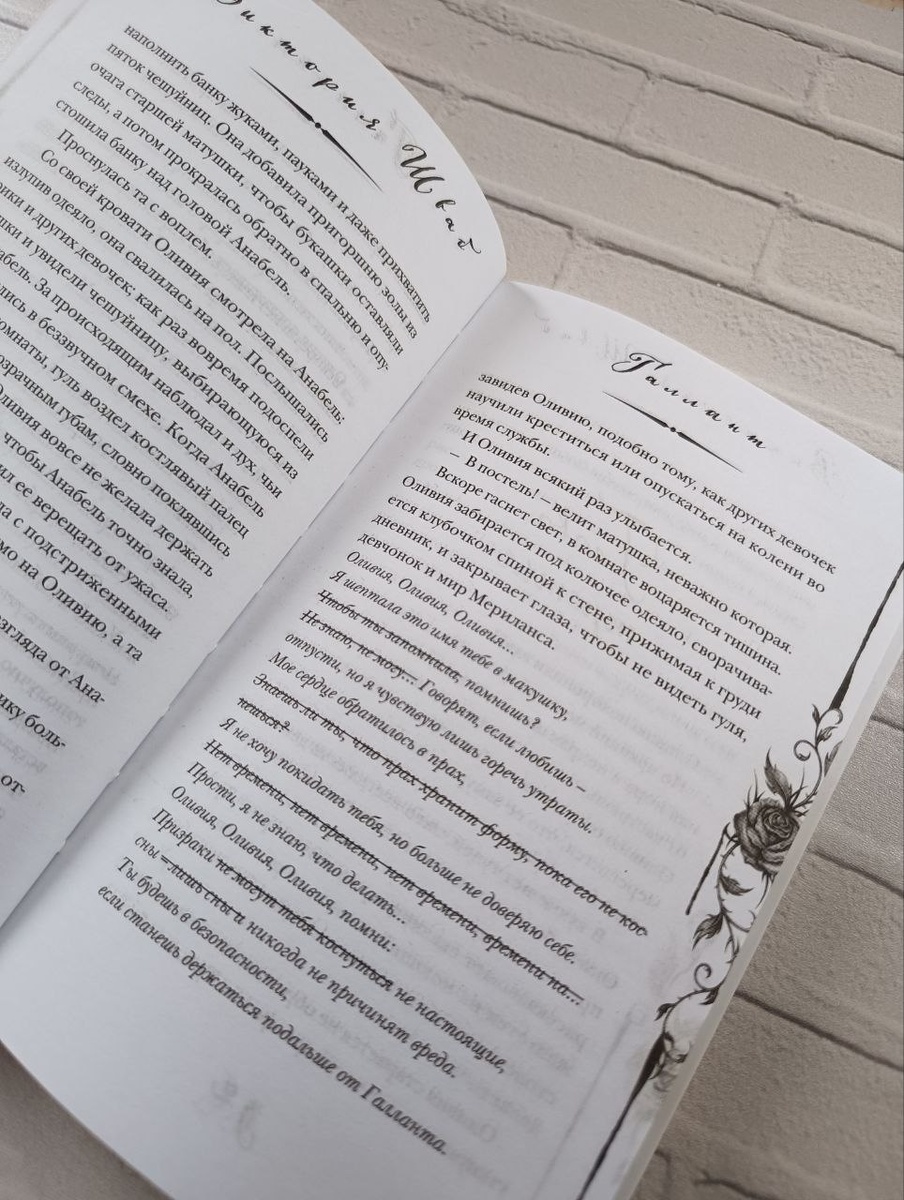 Виктория Шваб
наполнить банку жуками, пауками и даже прихватить
пяток чешуйниц. Она добавила пригоршню золы из
очага старшей матушки, чтобы букашки оставляли
следы, а потом прокралась обратно в спальню и опу-
стошила банку над головой Анабель.
Проснулась та с воплем.
Со своей кровати Оливия смотрела на Анабель:
излупив одеяло, она свалилась на пол. Послышались
и других девочек; как раз вовремя подоспели
и увидели чешуйницу, выбирающуюся из
За происходящим наблюдал и дух, чьи
в беззвучном смехе. Когда Анабель
гуль воздел костлявый палец
губам, словно поклявшись
Оливия вовсе не желала держать
чтобы Анабель точно знала,
ее верещать от ужаса.
с подстриженными
на Оливию, а та
взгляда от Ана-
боль-
от-
Галлант
завидев Оливию, подобно тому, как других девочек
научили креститься или опускаться на колени во
время службы.
И Оливия всякий раз улыбается.
– В постель! – велит матушка, неважно которая.
Вскоре гаснет свет, в комнате воцаряется тишина.
Оливия забирается под колючее одеяло, сворачива-
ется клубочком спиной к стене, прижимая к груди
дневник, и закрывает глаза, чтобы не видеть гуля,
девчонок и мир Мериланса.
Оливия, Оливия, Оливия...
Я шептала это имя тебе в макушку,
Чтобы ты запомнила, помнишь?
Не знаю, не могу... Говорят, если любишь –
отпусти, но я чувствую лишь горечь утраты.
Мое сердце обратилось в прах,
Знаешь ли ты, что прах хранит форму, пока его не кос-
нешься?
Я не хочу покидать тебя, но больше не доверяю себе.
Нет времени, нет времени, нет времени, времени на...
Прости, я не знаю, что делать...
Оливия, Оливия, Оливия, помни:
Призраки не могут тебя коснуться не настоящие,
сны – лишь сны и никогда не причинят вреда.
Ты будешь в безопасности,
если станешь держаться подальше от Галланта.